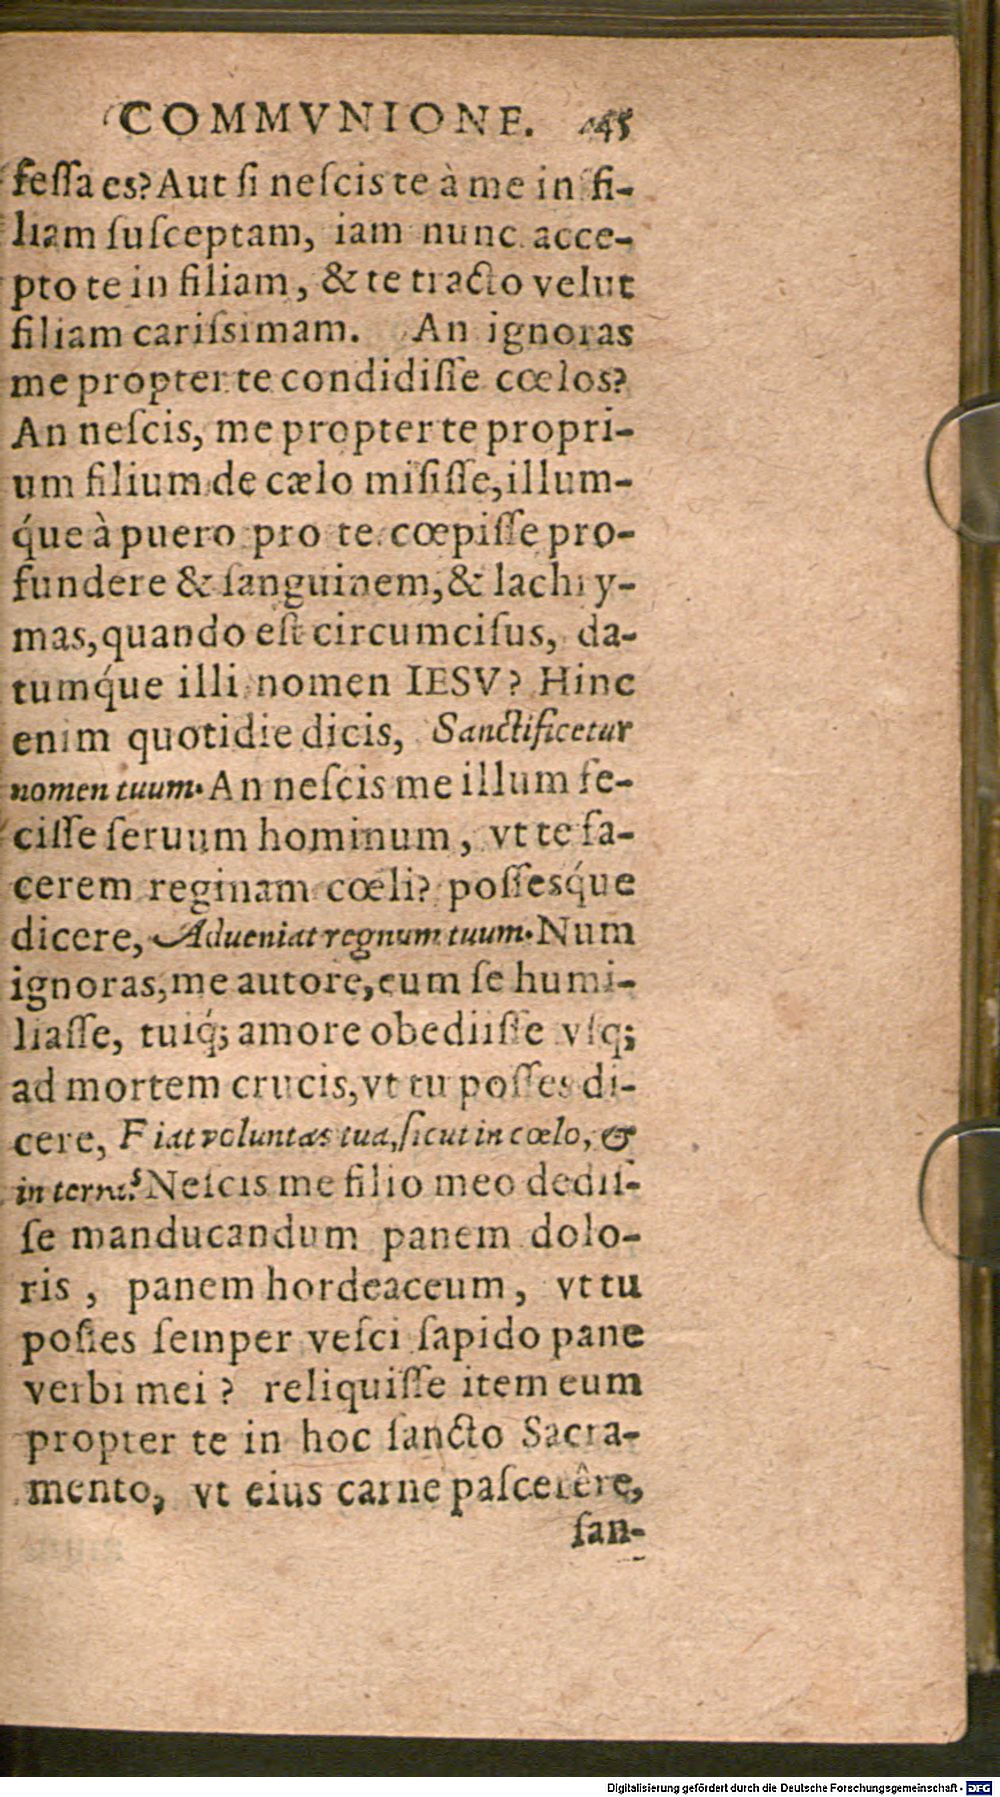 COMMVNIONE. 45
feſſa es? Aut ſi neſcis te à me in fi-
liam ſuſceptam, iam nunc acce-
pto te in filiam, & te tracto velut
filiam cariſsimam. An ignoras
me propter te condidiſſe cœlos?
An neſcis, me propter te propri-
um filium de cælo miſiſſe, illum-
q́ue à puero pro te cœpiſſe pro-
fundere & ſanguinem, & lachry-
mas, quando eſt circumciſus, da-
tumq́ue illi nomen IESV? Hinc
enim quotidie dicis, Sanctificetur
nomen tuum. An neſcis me illum fe-
ciſſe ſeruum hominum, vt te fa-
cerem reginam cœli? poſſesq́ue
dicere, Adueniat regnum tuum. Num
ignoras, me autore, eum ſe humi-
liaſſe, tuiq́; amore obediiſſe vſq;
ad mortem crucis, vt tu poſſes di-
cere, Fiat voluntas tua, ſicut in cœlo, &
in terra? Neſcis me filio meo dediſ-
ſe manducandum panem dolo-
ris, panem hordeaceum, vt tu
poſſes ſemper veſci ſapido pane
verbi mei? reliquiſſe item eum
propter te in hoc ſancto Sacra-
mento, vt eius carne paſcerêre,
ſan-
Digitalisierung gefördert durch die Deutsche Forschungsgemeinschaft - DFG